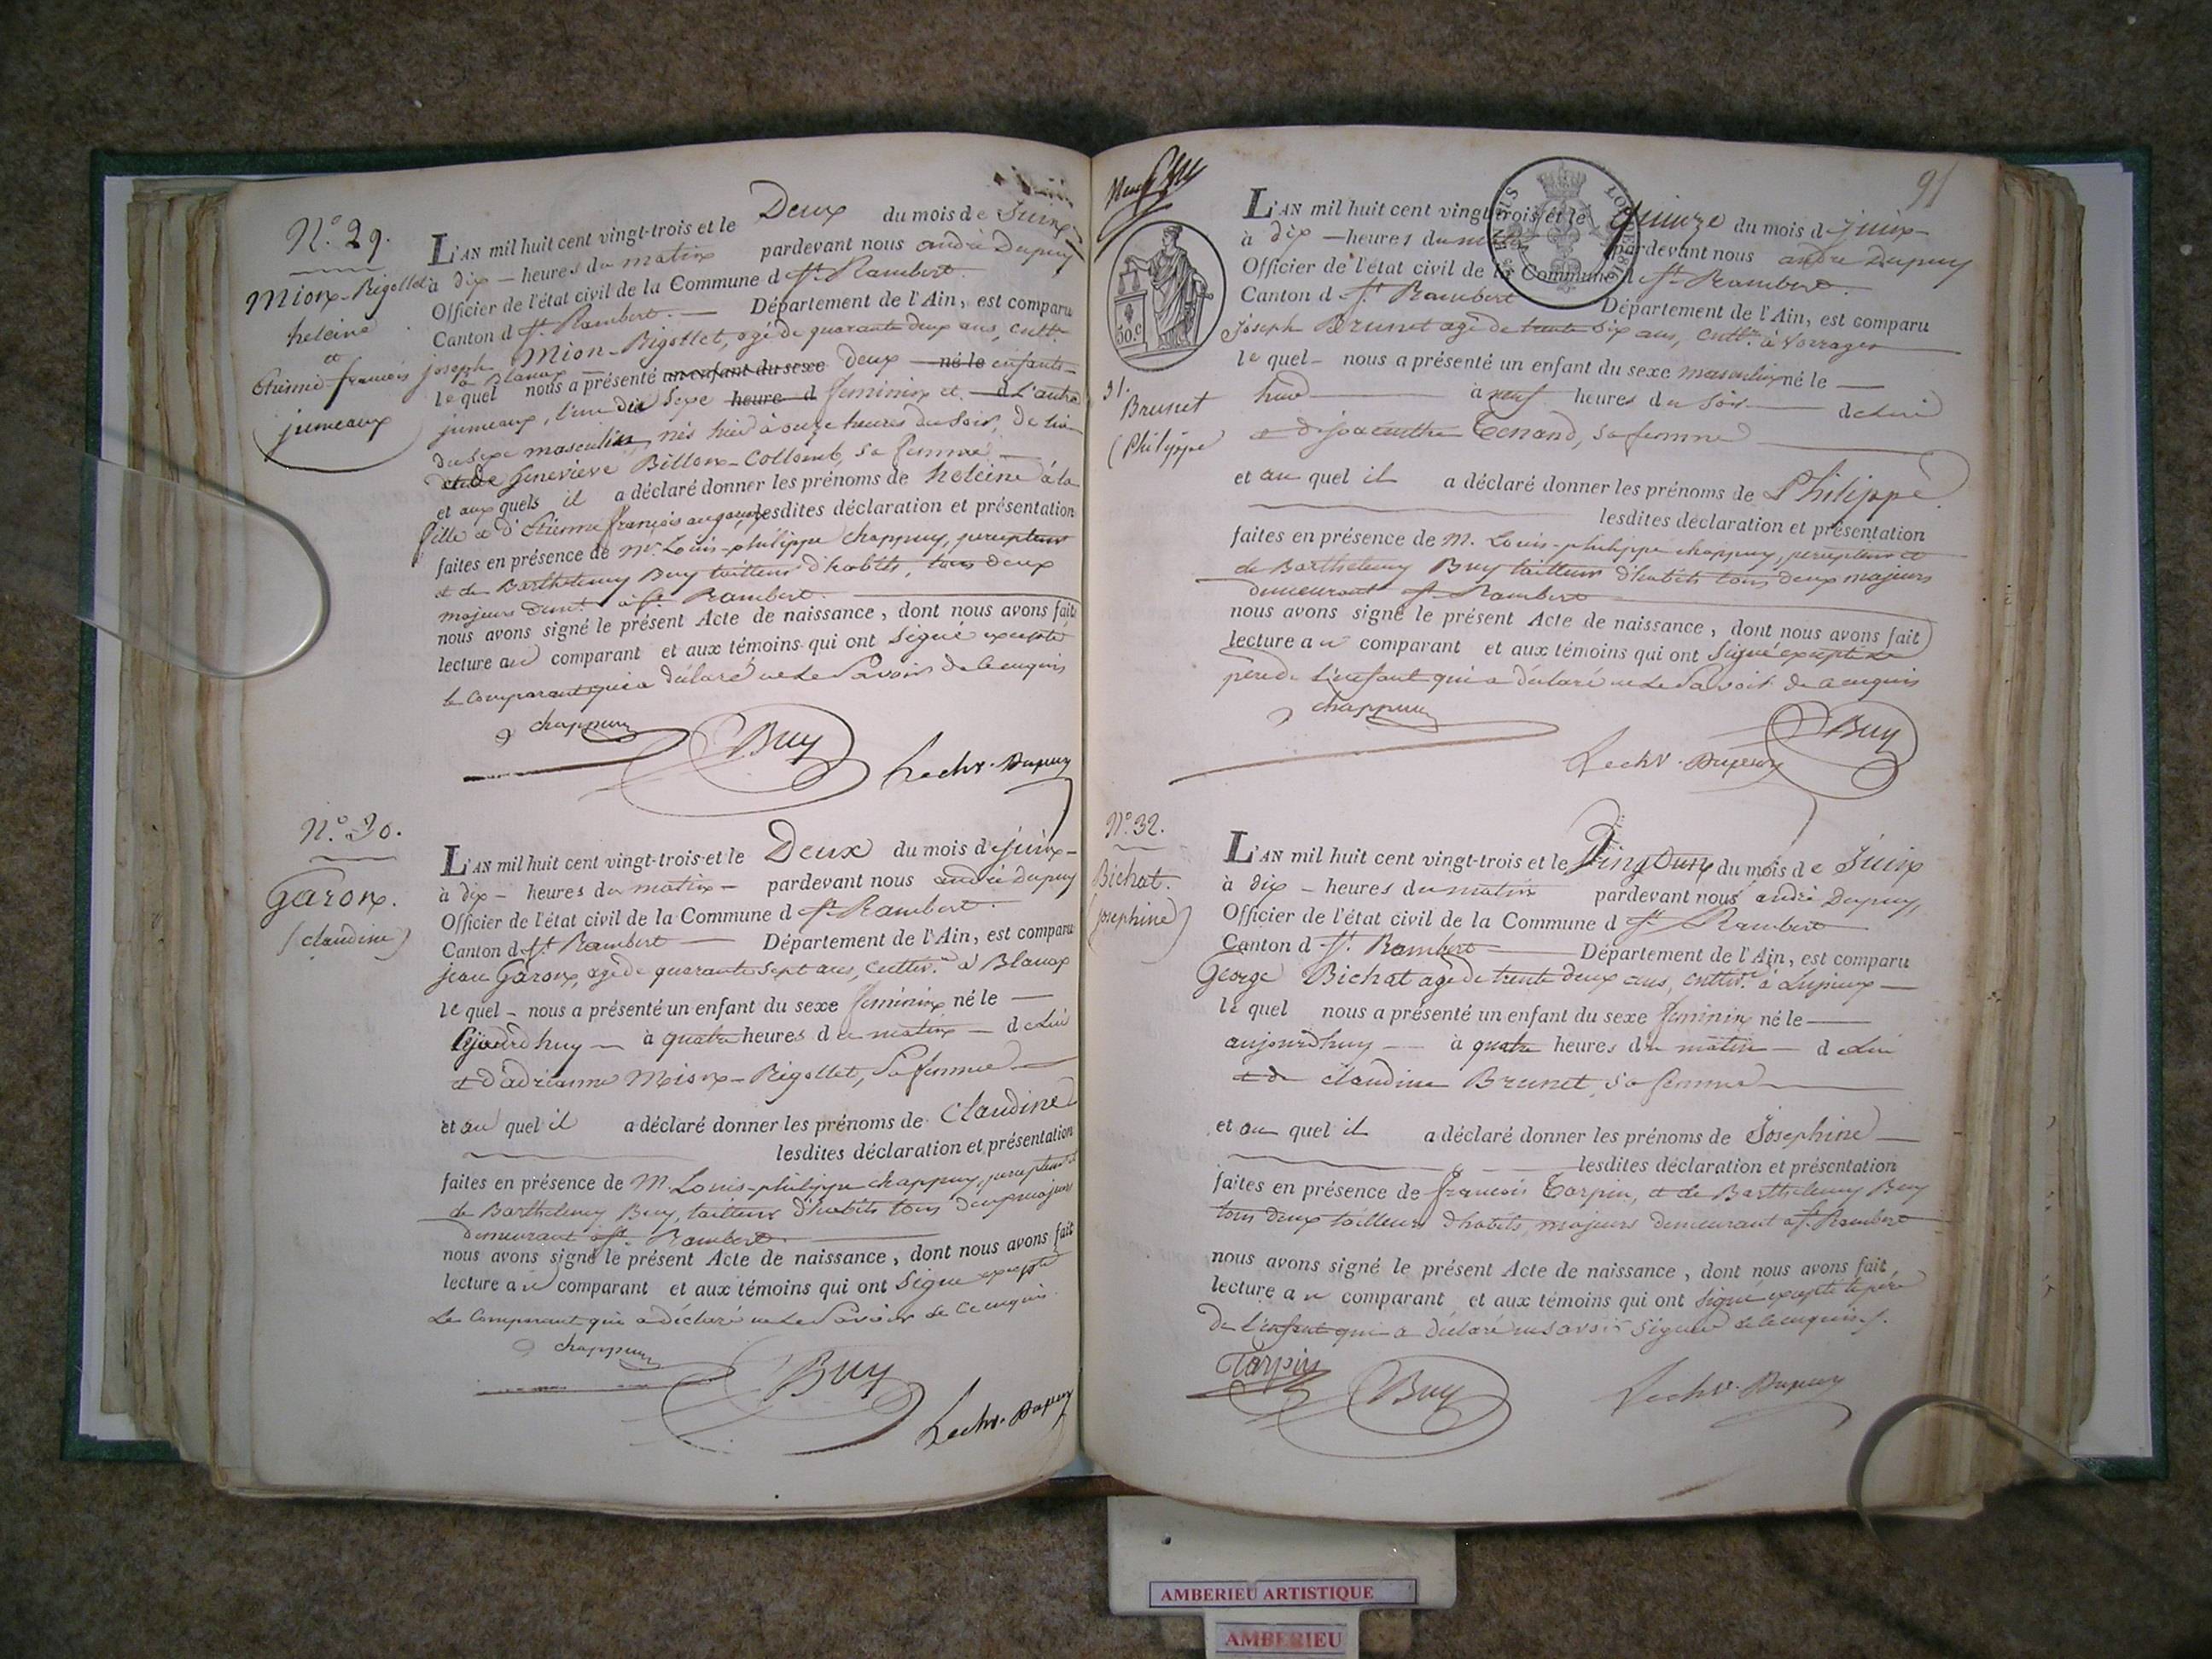 N.° 29.
Mion-Rigollet
heleine
et
Etienne-francois
jumeaux
L'AN mil huit cent vingt-trois et le Deux du mois de Juin
à dix - heures du matin pardevant nous andré Dupuy
Officier de l'état civil de la Commune d St. Rambert.
Canton d St. Rambert. — Département de l'Ain, est comparu
joseph Mion-Rigollet, agé de quarante deux ans, cultr.
à Blanaz
lequel nous a présenté un enfant du sexe deux né le enfants
jumeaux, l'une du sexe heure d feminin et d l'autre
du sexe masculin, nés hier à onze heures du soir, de lui
et de Genevieve Billon-Collomb, sa femme
et aux quels il a déclaré donner les prénoms de heleine à la
fille et d'Etienne françois au garçon lesdites déclaration et présentation
faites en présence de Mr. Louis-philippe Chappuy, percepteur
et de Barthelemy Buy tailleur d'habits, tous deux
majeurs demt. à St. Rambert.
nous avons signé le présent Acte de naissance, dont nous avons fait
lecture au comparant et aux témoins qui ont signé excepté
le comparant qui a déclaré ne le savoir de ce enquis
chappuy Buy Lechr. Dupuy
N.° 30.
Garon.
(claudine)
L'AN mil huit cent vingt-trois et le Deux du mois de juin
à dix - heures du matin - pardevant nous andré Dupuy
Officier de l'état civil de la Commune d St. Rambert.
Canton d St. Rambert — Département de l'Ain, est comparu
jean Garon, agé de quarante sept ans, cultivr. à Blanaz
lequel - nous a présenté un enfant du sexe feminin né le —
aujourd'huy — à quatre heures du matin — de lui
et d'adrianne Mion-Rigollet, sa femme
et au quel il a déclaré donner les prénoms de Claudine
lesdites déclaration et présentation
faites en présence de M. Louis-philippe chappuy, percepteur et
de Barthelemy Buy, tailleur d'habits tous deux majeurs
demeurant à St. Rambert.
nous avons signé le présent Acte de naissance, dont nous avons fait
lecture au comparant et aux témoins qui ont signé excepté
le comparant qui a déclaré ne le savoir de ce enquis.
chappuy Buy Lechr. Dupuy
91
50.c
31.
Brunet
(Philippe
L'AN mil huit cent vingt-trois et le quinze du mois d juin
à dix — heures du matin pardevant nous andré Dupuy
Officier de l'état civil de la Commune d St. Rambert.
Canton d St. Rambert Département de l'Ain, est comparu
joseph Brunet agé de trente six ans, cultr. à Vorrages
lequel - nous a présenté un enfant du sexe masculin né le —
hier à neuf heures du soir de lui
et d' Tenand, sa femme
et au quel il a déclaré donner les prénoms de Philippe
lesdites déclaration et présentation
faites en présence de M. Louis-philippe chappuy, percepteur et
de Barthelemy Buy tailleur d'habits tous deux majeurs
demeurant St. Rambert
nous avons signé le présent Acte de naissance, dont nous avons fait
lecture au comparant et aux témoins qui ont signé excepté le
père de l'enfant qui a déclaré ne le savoir de ce enquis
chappuy Buy
Lechr. Dupuy
N.° 32.
Bichat.
(josephine)
L'AN mil huit cent vingt-trois et le Vingt un du mois de Juin
à dix - heures du matin pardevant nous andré Dupuy,
Officier de l'état civil de la Commune d St. Rambert
Canton d St. Rambert — Département de l'Ain, est comparu
George Bichat agé de trente deux ans, cultivr. à Lupieux —
lequel nous a présenté un enfant du sexe feminin né le —
aujourd'huy — à quatre heures du matin — de lui
et de claudine Brunet, sa femme
et au quel il a déclaré donner les prénoms de Josephine
lesdites déclaration et présentation
faites en présence de francois Tarpin, et de Barthelemy Buy
tous deux tailleurs d'habits, majeurs demeurant à St. Rambert
nous avons signé le présent Acte de naissance, dont nous avons fait
lecture au comparant et aux témoins qui ont signé excepté le père
de l'enfant qui a déclaré ne savoir signer de ce enquis.
Tarpin Buy Lechr. Dupuy
AMBERIEU ARTISTIQUE
AMBERIEU